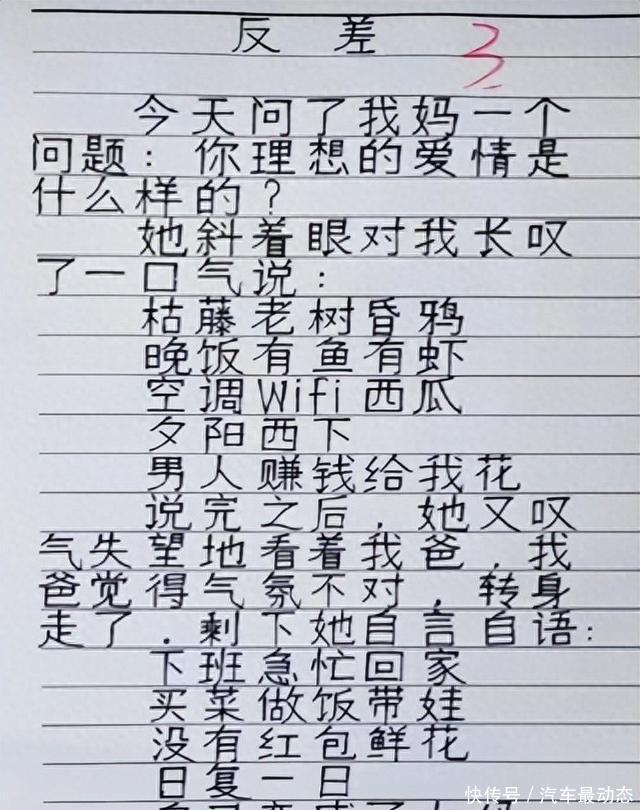 反差 3
今天问了我妈一个
问题：你理想的爱情是
什么样的？
她斜着眼对我长叹
了一口气说：
枯藤老树昏鸦
晚饭有鱼有虾
空调Wifi西瓜
夕阳西下
男人赚钱给我花
说完之后，她又叹
气失望地看着我爸，我
爸觉得气氛不对，转身
走了．剩下她自言自语：
下班急忙回家
买菜做饭带娃
没有红包鲜花
日复一日
快传号／汽车最动态